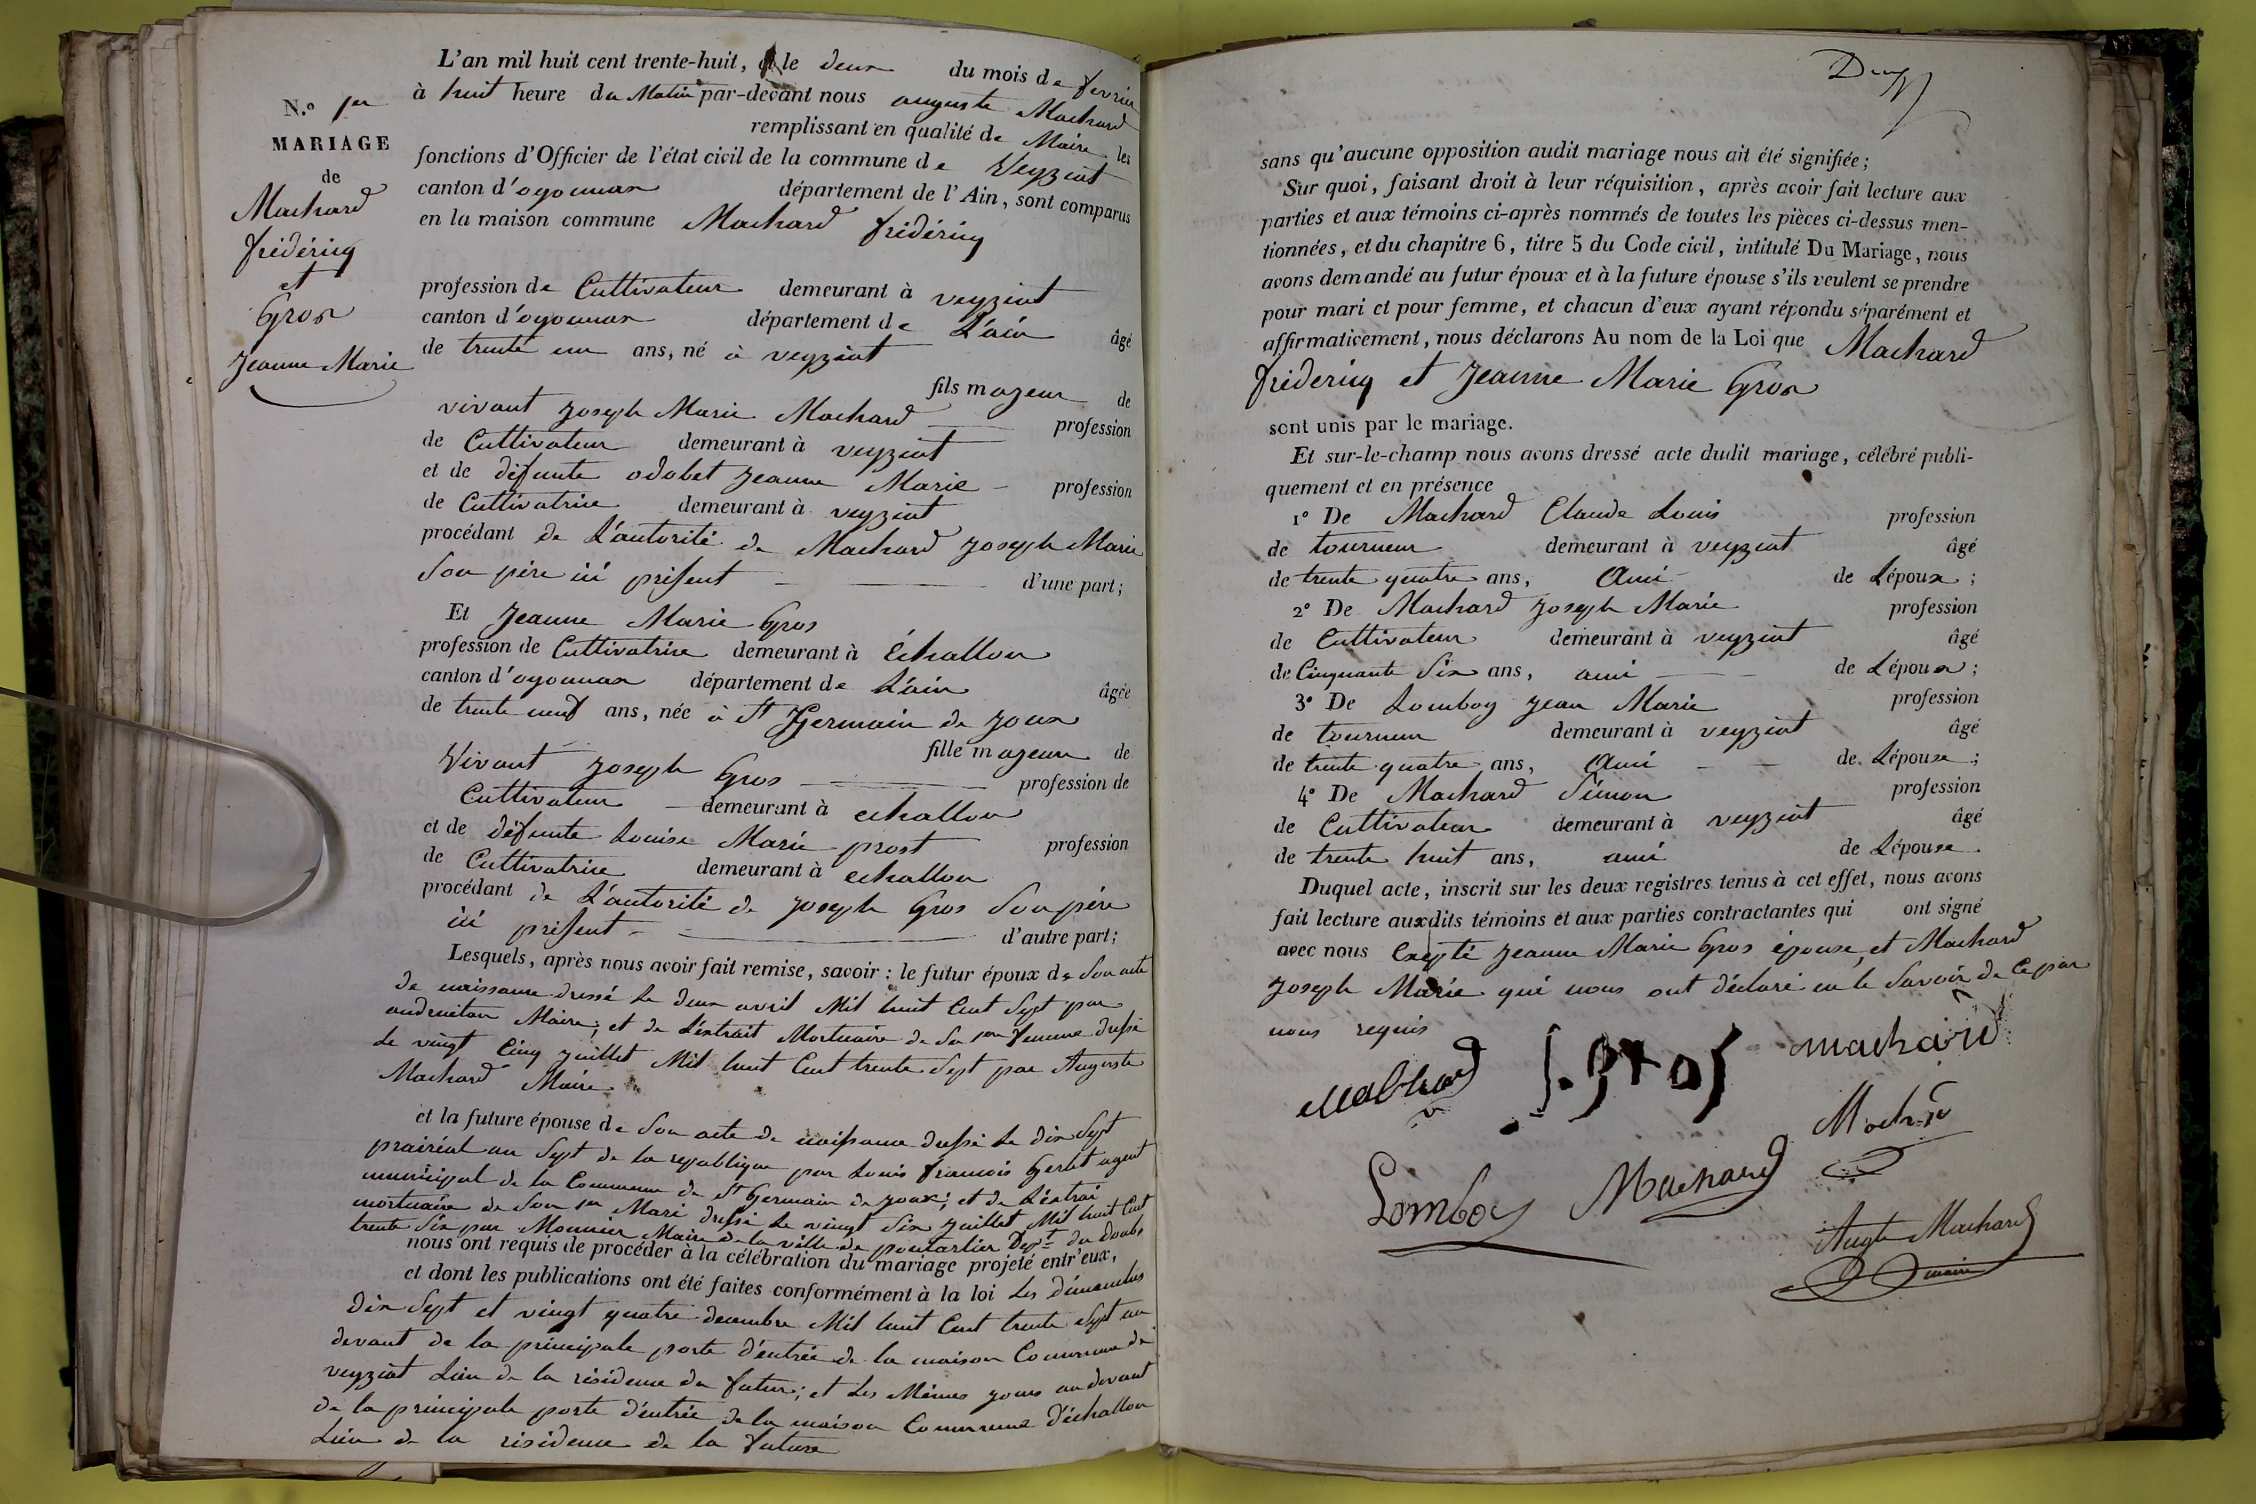 N.o 1er
MARIAGE
de
Machard
frédéricq
et
Gros
Jeanne Marie
L'an mil huit cent trente-huit, le deux du mois de fevrier
à huit heure du Matin par-devant nous auguste Machard
remplissant en qualité de Maire les
fonctions d'Officier de l'état civil de la commune de Veyziat
canton d'oyonnax département de l'Ain, sont comparus
en la maison commune Machard frédéricq
profession de Cultivateur demeurant à veyziat
canton d'oyonnax département de L'ain âgé
de trente un ans, né à veyziat
fils majeur de
vivant Joseph Marie Machard profession
de Cultivateur demeurant à veyziat
et de défunte odobet Jeanne Marie profession
de Cultivatrice demeurant à veyziat
procédant de L'autorité de Machard Joseph Marie
Son père ici présent d'une part;
Et Jeanne Marie Gros
profession de Cultivatrice demeurant à Échallon
canton d'oyonnax département de L'ain âgée
de trente neuf ans, née à St Germain de Joux
fille majeure de
Vivant Joseph Gros profession de
Cultivateur demeurant à echallon
et de défunte Louise Marie prost profession
de Cultivatrice demeurant à echallon
procédant de L'autorité de Joseph Gros Son père
ici présent d'autre part;
Lesquels, après nous avoir fait remise, savoir: le futur époux de Son acte
de naissance dressé Le deux avril Mil huit Cent Sept par
Maire; et de L'extrait Mortuaire de Sa 1ere femme dressé
Le vingt Cinq Juillet Mil huit Cent trente Sept par Auguste
Machard Maire
et la future épouse de Son acte de naissance dressé Le dix Sept
prairéal an Sept de la republique par Louis francois Gerlet agent
municipal de la Commune de St Germain de Joux; et de L'extrai
mortuaire de Son 1er Mari dressé Le vingt Six Juillet Mil huit Cent
trente Six par Monnier Maire de la ville de pontarlier Dept du Doubs
nous ont requis de procéder à la célébration du mariage projeté entr'eux,
et dont les publications ont été faites conformément à la loi Les dimanches
dix Sept et vingt quatre decembre Mil huit Cent trente Sept au
devant de la principale porte d'entrée de la maison Commune de
veyziat Lieu de la résidence du futur; et Les Mêmes jours au devant
de la principale porte d'entrée de la maison Commune d'échallon
Lieu de la résidence de la future
sans qu'aucune opposition audit mariage nous ait été signifiée;
Sur quoi, faisant droit à leur réquisition, après avoir fait lecture aux
parties et aux témoins ci-après nommés de toutes les pièces ci-dessus men-
tionnées, et du chapitre 6, titre 5 du Code civil, intitulé Du Mariage, nous
avons demandé au futur époux et à la future épouse s'ils veulent se prendre
pour mari et pour femme, et chacun d'eux ayant répondu séparément et
affirmativement, nous déclarons Au nom de la Loi que Machard
frédéricq et Jeanne Marie Gros
sont unis par le mariage.
Et sur-le-champ nous avons dressé acte dudit mariage, célébré publi-
quement et en présence
1° De Machard Claude Louis profession
de tourneur demeurant à veyziat âgé
de trente quatre ans, Ami de Lépoux;
2° De Machard Joseph Marie profession
de Cultivateur demeurant à veyziat âgé
de Cinquante Six ans, ami de Lépoux;
3° De Lomboy Jean Marie profession
de tourneur demeurant à veyziat âgé
de trente quatre ans, Ami de Lépouse;
4° De Machard Simon profession
de Cultivateur demeurant à veyziat âgé
de trente huit ans, ami de Lépouse
Duquel acte, inscrit sur les deux registres tenus à cet effet, nous avons
fait lecture auxdits témoins et aux parties contractantes qui ont signé
avec nous Excepté Jeanne Marie Gros épouse, et Machard
Joseph Marie qui nous ont déclaré ne le Savoir de Ce par
nous requis
machard
Lomboy Machard
Augte Machard
maire